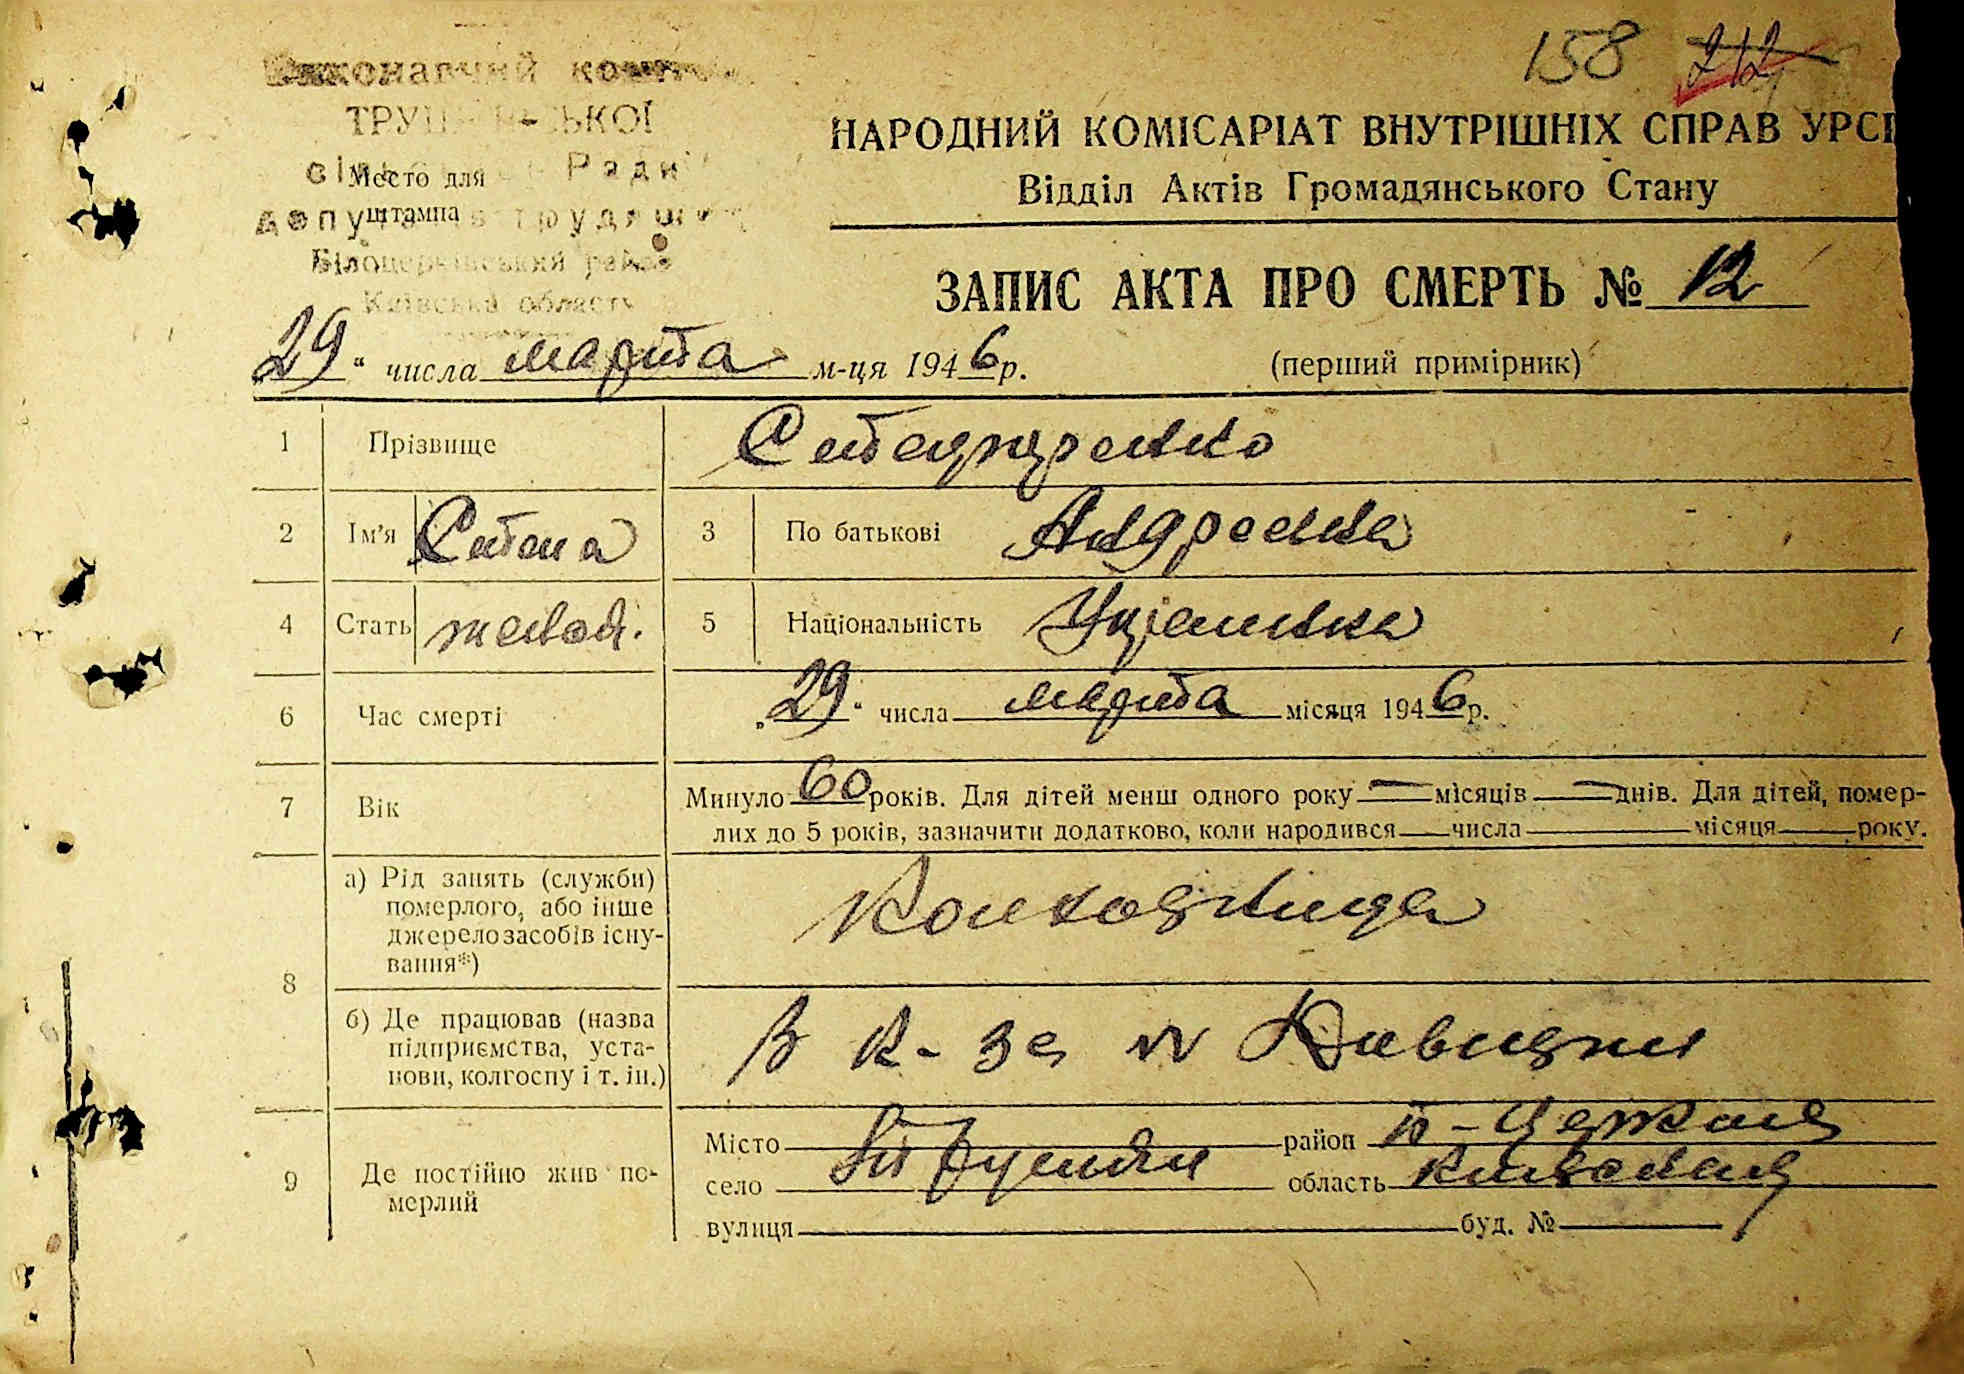 158 212
Виконавчий
ТРУ СЬКОЇ
Ради
Место для
штампа
Білоцерківський
Київської області
НАРОДНИЙ КОМІСАРІАТ ВНУТРІШНІХ СПРАВ УРСР
Відділ Актів Громадянського Стану
ЗАПИС АКТА ПРО СМЕРТЬ № 12
29 " числа марта м-ця 1946 р.
(перший примірник)
1 Прізвище
2 Ім'я Степа 3 По батькові Андреевна
4 Стать женск. 5 Національність Украинка
6 Час смерті „29" числа марта місяця 1946 р.
7 Вік Минуло 60 років. Для дітей менш одного року — місяців — днів. Для дітей, помер-
лих до 5 років, зазначити додатково, коли народився — числа місяця року.
8 а) Рід занять (служби)
померлого, або інше
джерело засобів існу-
вання*)
Колхозница
б) Де працював (назва
підприємства, уста-
нови, колгоспу і т. ін.)
В к-зе
9 Де постійно жив по-
мерлий
Місто район Б-Церковс
село Трушки область Киевская
вулиця буд. №